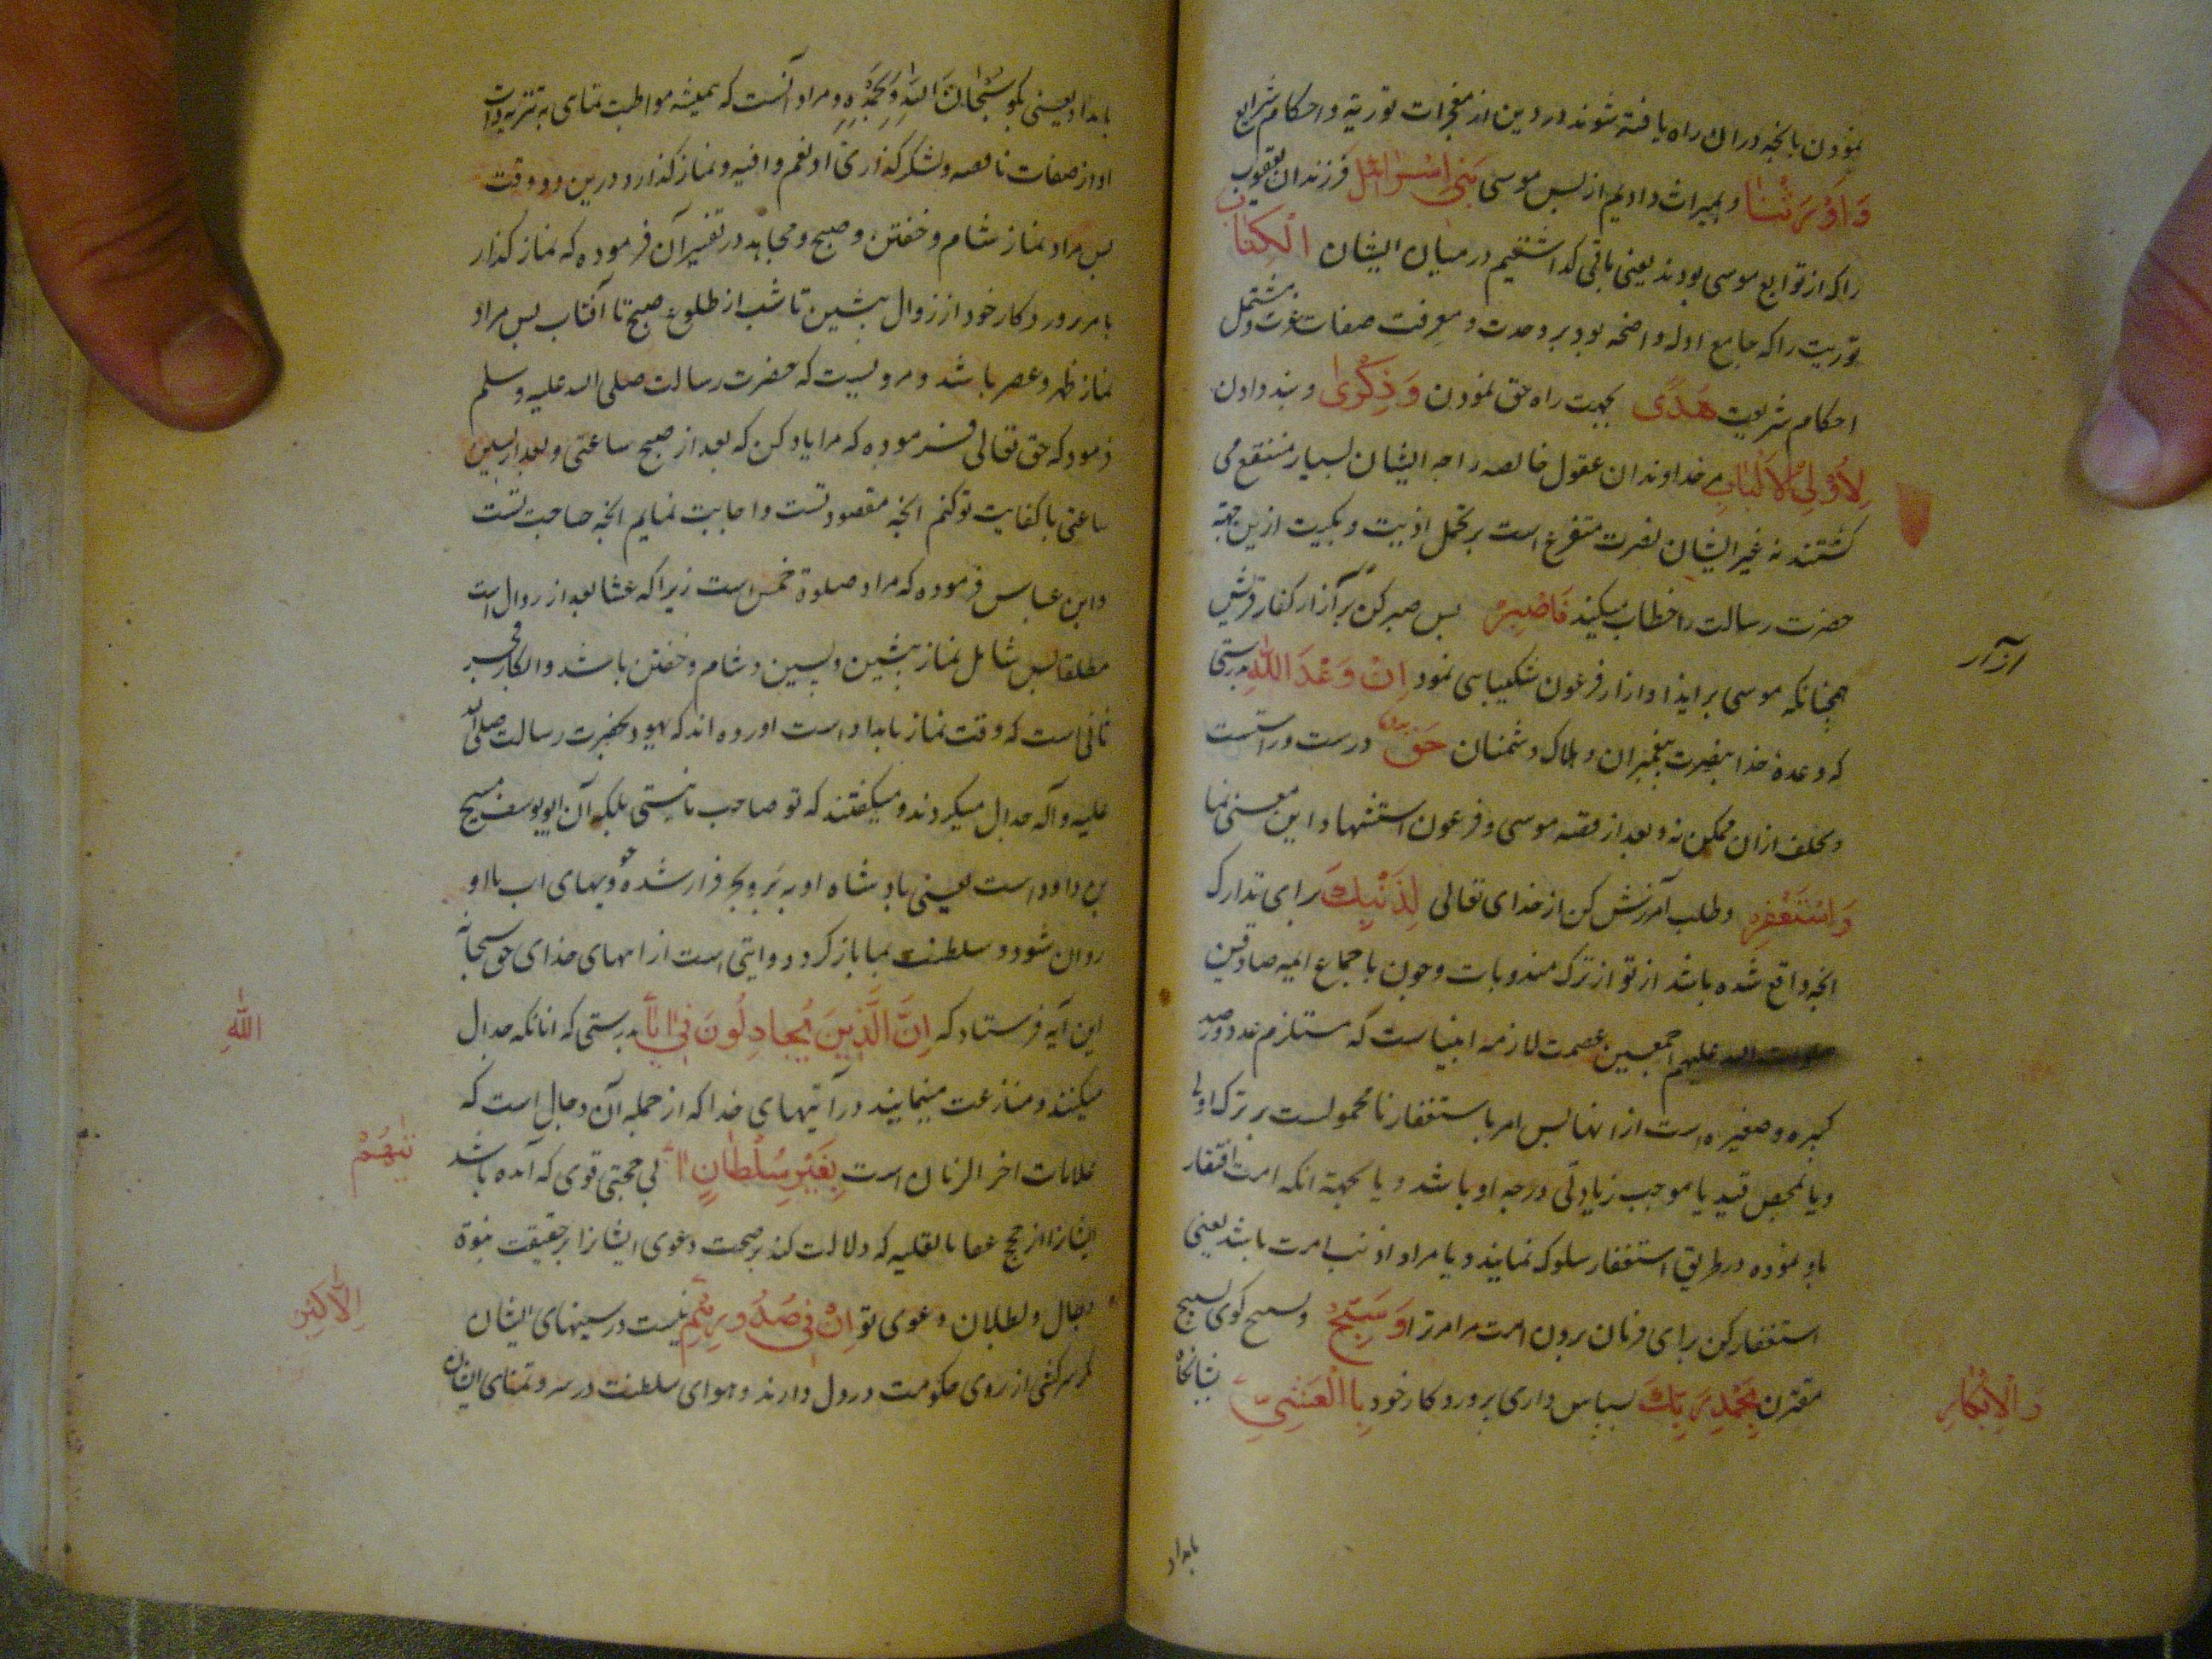 نمودن بانچه دران راه یافته شوند در دین از معجزات توریة و احکام شرایع
وَاَوْرَثْنَا و بمیراث دادیم از پس موسی بَنِی اِسْرَائِیلَ فرزندان یعقوب
را که از توابع موسی بودند یعنی باقی کذاشتیم در میان ایشان الْکِتَابَ
توریت را که جامع ادله واضحه بود بر وحدت و معرفت صفات عزت و مشتمل
احکام شریعت هُدًی بجهت راه حق نمودن وَذِکْرَیٰ و پند دادن
لِاُولِی الْاَلْبَابِ مر خداوندان عقول خالصه را چه ایشان بسیار منتفع می
کشتند نه غیر ایشان نصرت متفرع است بر تحمل اذیت و بکیت ازین جهة
حضرت رسالت را خطاب میکند فَاصْبِرْ پس صبر کن بر آزار کفار قریش
همچنانکه موسی بر ایذا و ازار فرعون شکیبایی نمود اِنَّ وَعْدَ اللّٰهِ بدرستی
که وعدهٔ خدا بنصرت پیغمبران و هلاک دشمنان حَقٌّ درست و راستست
و تخلف ازان ممکن نه و بعد از قصه موسی و فرعون استشهاد این معنی نما
وَاسْتَغْفِرْ و طلب آمرزش کن از خدای تعالی لِذَنْبِکَ برای تدارک
انچه واقع شده باشد از تو از ترک مندوبات و چون باجماع ایمه صادقین
صلوات الله علیهم اجمعین عصمت لازمه انبیاست که مستلزم عدم صدور
کبیره و صغیره است از انها پس امر باستغفار نا محمولست بر ترک اولی
و یا بمحض تعبد یا موجب زیادتی درجه او باشد و یا بجهة انکه امت اقتفار
باو نموده در طریق استغفار سلوک نمایند و یا مراد از ذنب امت باشد یعنی
استغفار کن برای فرمان بردن امت مر امر ترا وَسَبِّحْ و تسبیح کوی تسبیح
مقترن بِحَمْدِ رَبِّکَ بسپاس داری پروردکار خود بِالْعَشِیِّ شبانکاه
وَالْاِبْکَارِ
بامداد
بامداد یعنی بکو سُبْحَانَ اللّٰهِ وَبِحَمْدِهِ و مراد آنست که همیشه مواظبت نمای به تنزیه ذات
او از صفات ناقصه و بشکر کذاری او نعم وافیه و نماز کذار و درین دو وقت
پس مراد نماز شام و خفتن و صبح و مجاهد در تفسیر آن فرموده که نماز کذار
بامر پروردکار خود از زوال پیشین تا شب از طلوع صبح تا آفتاب پس مراد
نماز ظهر و عصر باشد و مرویست که حضرت رسالت صلی الله علیه وسلم
فرمود که حق تعالی فرموده که مرا یاد کن که بعد از صبح ساعتی و بعد از پسین
ساعتی تا کفایت تو کنم انچه مقصود تست و اجابت نمایم انچه حاجت تست
و ابن عباس فرموده که مراد صلوة خمس است زیرا که عشا بعد از زوال است
مطلقا پس شامل نماز پیشین و پسین و شام و خفتن باشد و ابکار خبر
ثانی است که وقت نماز بامداد است اورده اند که یهود بحضرت رسالت صلی الله
علیه و آله جدال میکردند و میکفتند که تو صاحب ما نیستی بلکه آن ابو یوسف مسیح
بن داود است یعنی پادشاه او به بر و بحر فرار شده و جویهای اب با او
روان شود و سلطنت بما باز کردد و ایتی است از ایتهای خدای حق سبحانه
این آیه فرستاد که اِنَّ الَّذِینَ یُجَادِلُونَ فِی اٰیَاتِ بدرستی که انانکه جدال
اللّٰهِ
میکنند و منازعت مینمایند در آیتهای خدا که از جمله آن دجال است که
علامات اخر الزمان است بِغَیْرِ سُلْطَانٍ اَ بی حجتی قوی که آمده باشد
تٰیهُمْ
ایشانرا از حجج عقلیه نقلیه که دلالت کند بر صحت دعوی ایشانرا بر حقیقت نبوة
دجال و بطلان دعوی تو اِنْ فِی صُدُورِهِمْ نیست در سینهای ایشان
اِلَّا کِبْرٌ
کر سرکشی از روی حکومت در دل دارند و هوای سلطنت در سر و تمنای ایشان